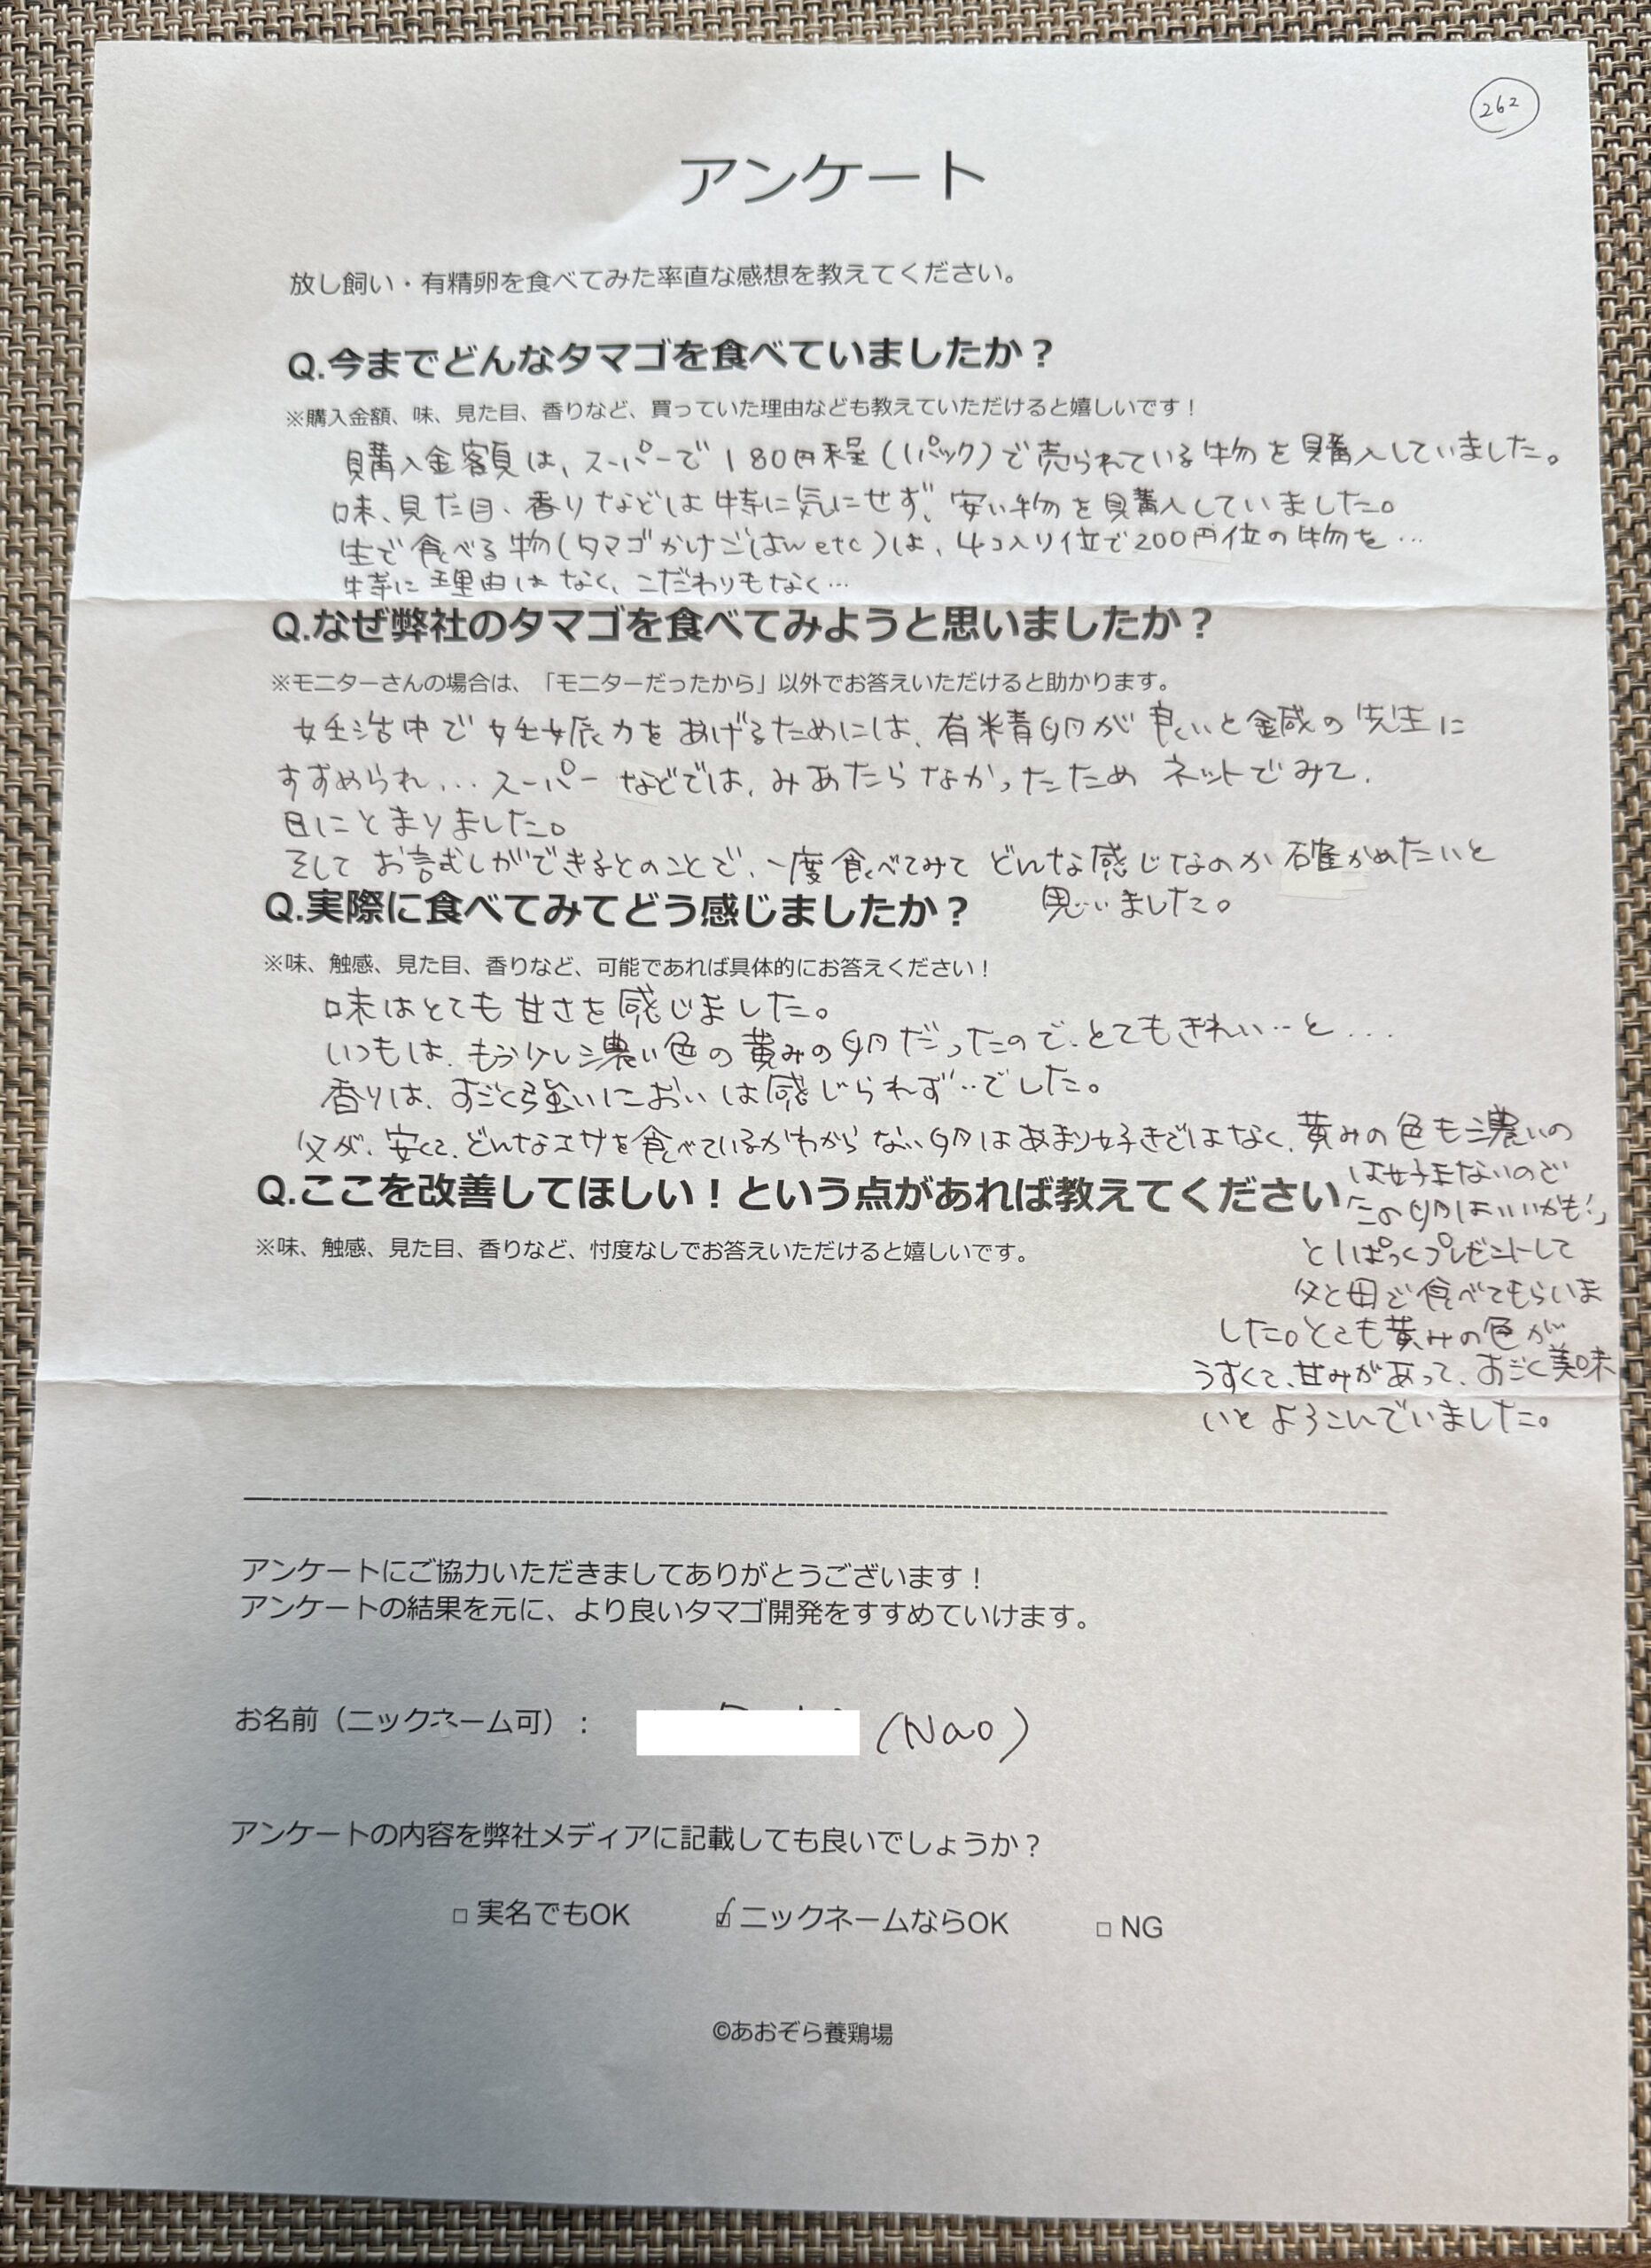 262
アンケート
放し飼い・有精卵を食べてみた率直な感想を教えてください。
Q.今までどんなタマゴを食べていましたか？
※購入金額、味、見た目、香りなど、買っていた理由なども教えていただけると嬉しいです！
購入金額は、スーパーで180円程(1パック)で売られている物を購入していました。
味、見た目、香りなどは特に気にせず、安い物を購入していました。
生で食べる物(タマゴかけごはんetc)は、4コ入り位で200円位の物を…
特に理由はなく、こだわりもなく…
Q.なぜ弊社のタマゴを食べてみようと思いましたか？
※モニターさんの場合は、「モニターだったから」以外でお答えいただけると助かります。
妊活中で妊娠力をあげるためには、有精卵が良いと鍼の先生に
すすめられ…スーパーなどでは、みあたらなかったため ネットでみて、
目にとまりました。
そして お試しができるとのことで、一度食べてみて どんな感じなのか確かめたいと
思いました。
Q.実際に食べてみてどう感じましたか？
※味、触感、見た目、香りなど、可能であれば具体的にお答えください！
味はとても甘さを感じました。
いつもは、もう少し濃い色の黄みの卵だったので、とてもきれい…と…
香りは、すごく強いにおいは感じられず…でした。
父が、安くて、どんなエサを食べているかわからない卵はあまり好きではなく、黄みの色も濃いの
は好まないので
「この卵はいいかも!」
と1ぱっくプレゼントして
父と母で食べてもらいま
した。とても黄みの色が
うすくて、甘みがあって、すごく美味
いと よろこんでいました。
Q.ここを改善してほしい！という点があれば教えてください
※味、触感、見た目、香りなど、忖度なしでお答えいただけると嬉しいです。
アンケートにご協力いただきましてありがとうございます！
アンケートの結果を元に、より良いタマゴ開発をすすめていけます。
お名前（ニックネーム可）： (Nao)
アンケートの内容を弊社メディアに記載しても良いでしょうか？
□ 実名でもOK ☑ ニックネームならOK □ NG
©あおぞら養鶏場